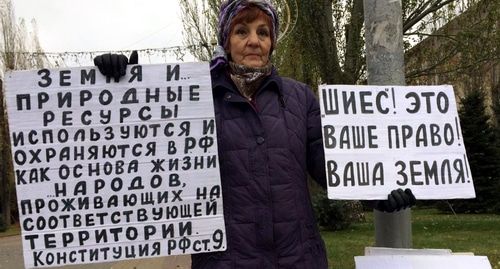 ЗЕМЛЯ И...
ПРИРОДНЫЕ
РЕСУРСЫ
ИСПОЛЬЗУЮТСЯ И
ОХРАНЯЮТСЯ В РФ
КАК ОСНОВА ЖИЗНИ
...НАРОДОВ,
ПРОЖИВАЮЩИХ НА
СООТВЕТСТВУЮЩЕЙ
ТЕРРИТОРИИ.
КОНСТИТУЦИЯ РФ СТ.9
„ШИЕС"! ЭТО
ВАШЕ ПРАВО!
ВАША ЗЕМЛЯ!